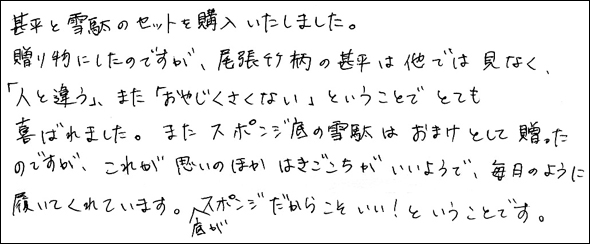 甚平と雪駄のセットを購入いたしました。
贈り物にしたのですが、尾張竹柄の甚平は他では見なく、
「人と違う」、また「おやじくさくない」ということでとても
喜ばれました。またスポンジ底の雪駄はおまけとして贈った
のですが、これが思いのほかはきごこちがいいようで、毎日のように
履いてくれています。底がスポンジだからこそいい！ということです。